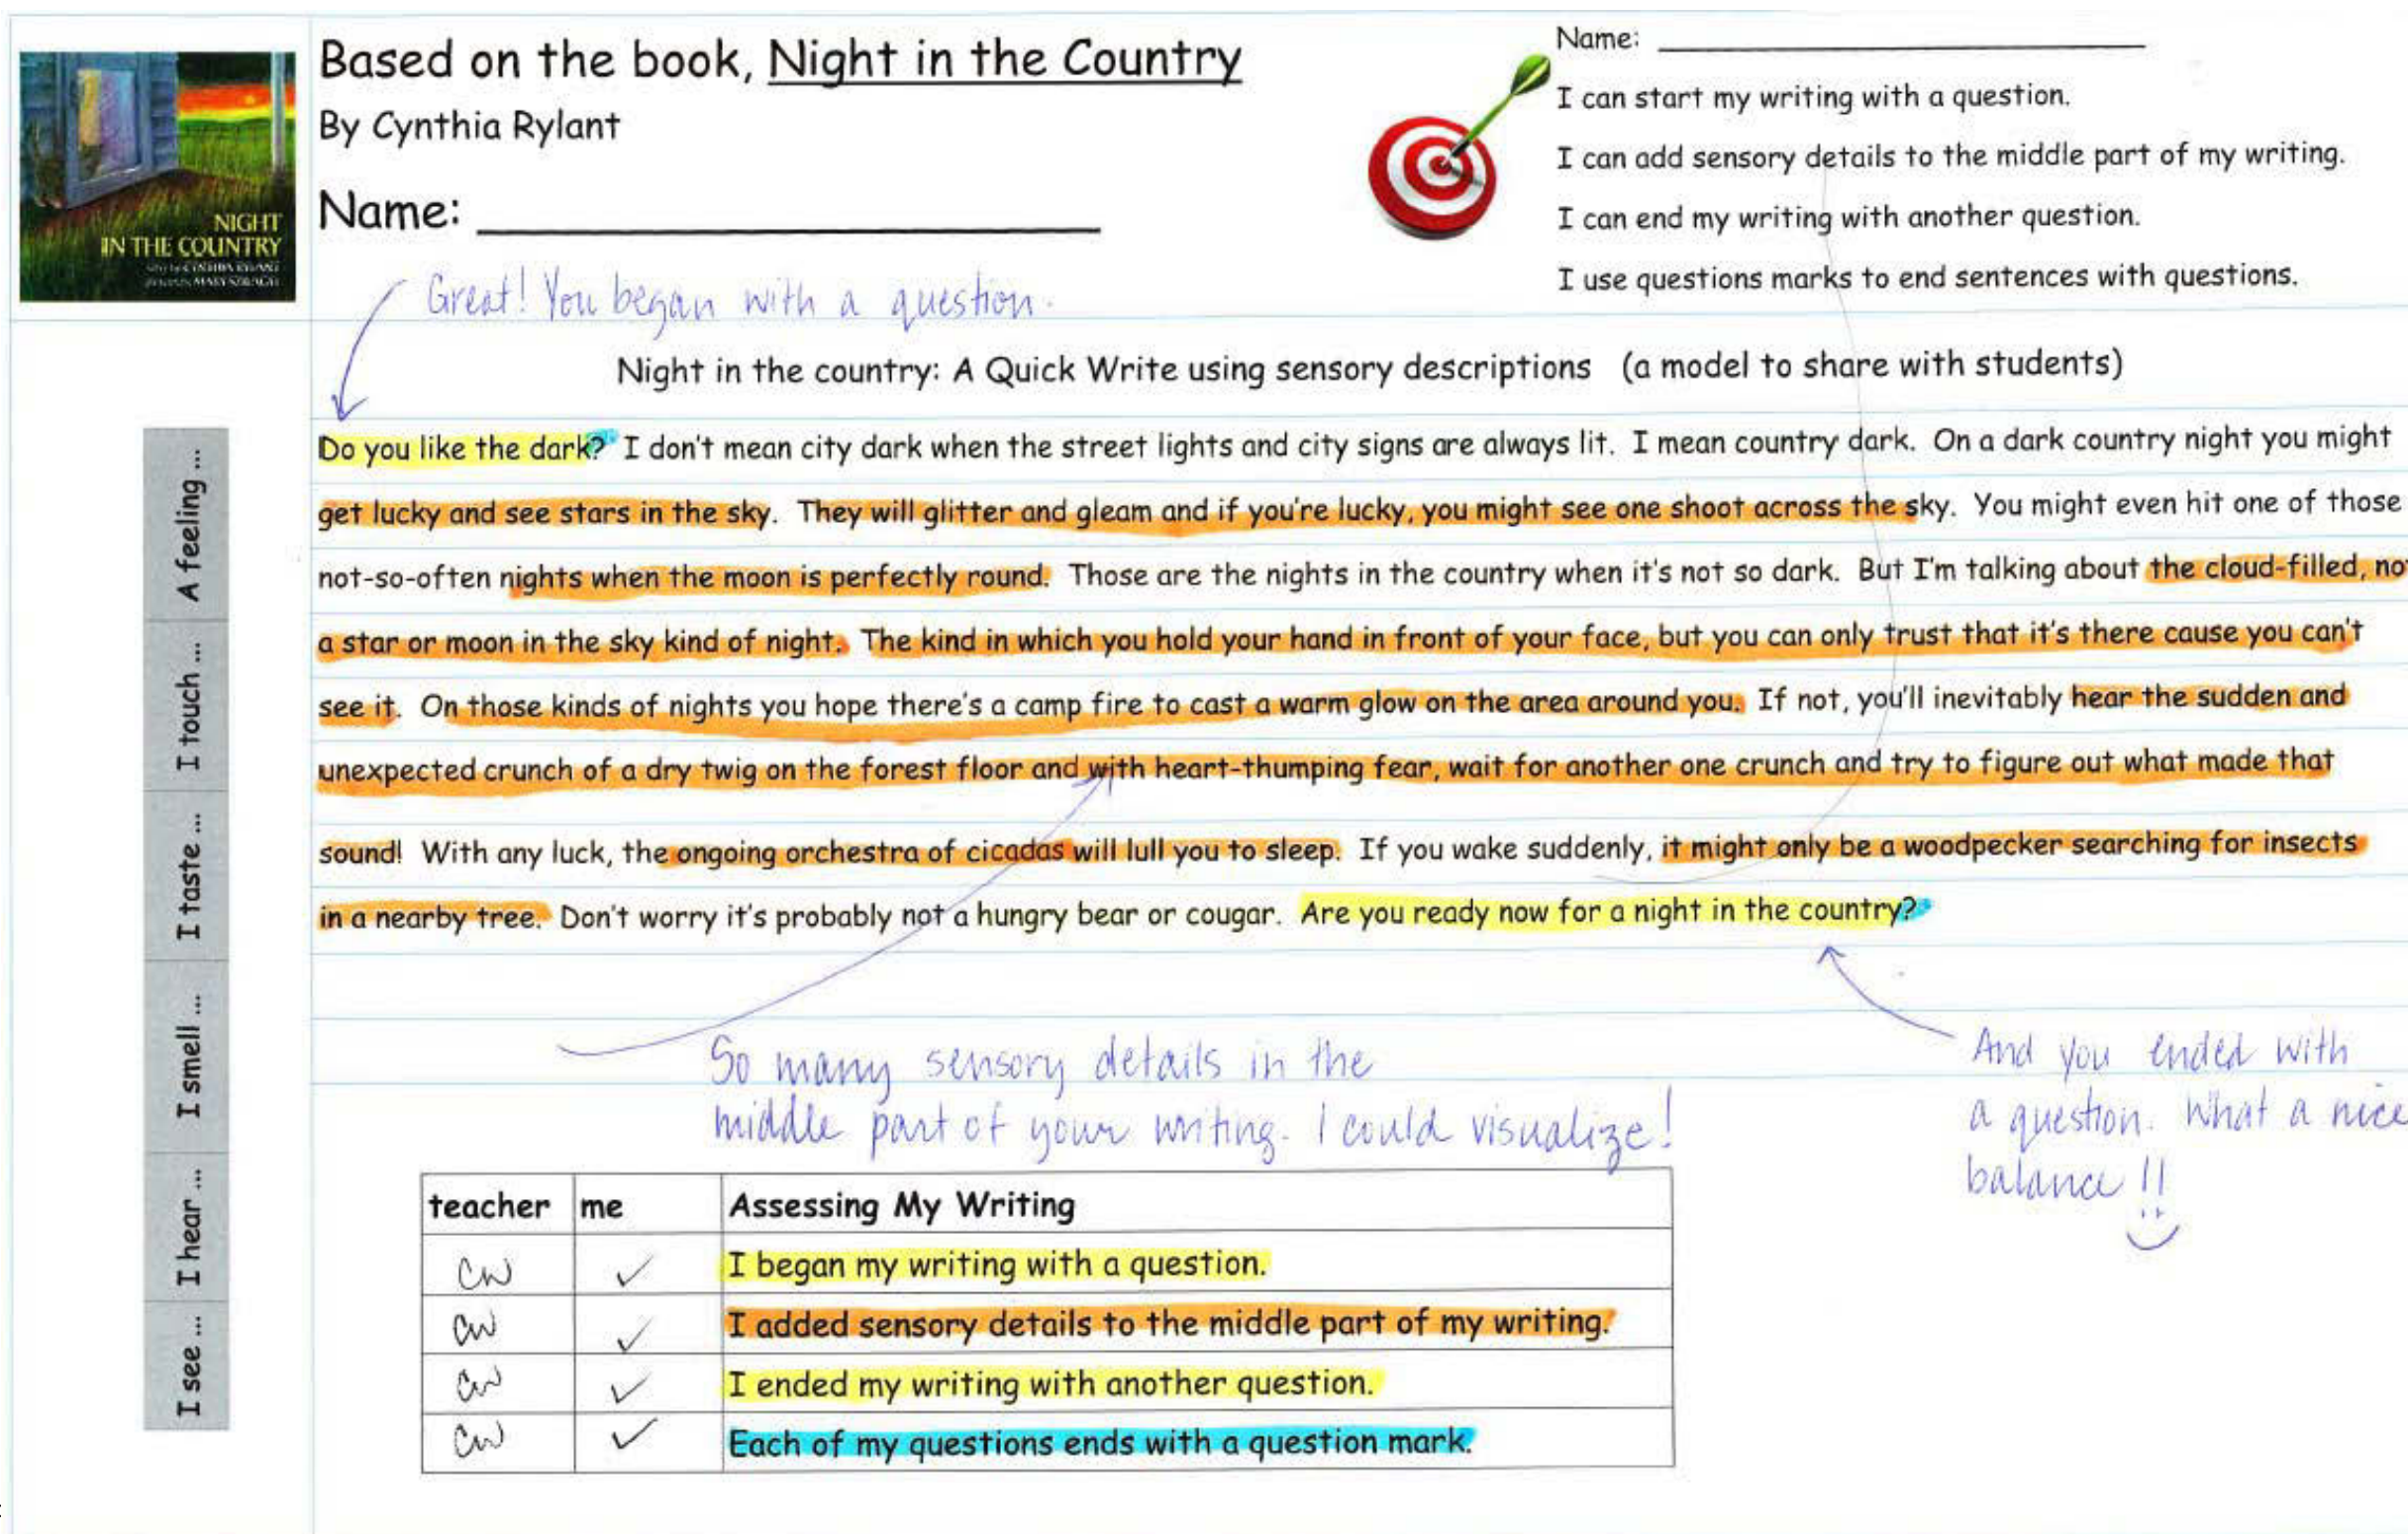 Based on the book, Night in the Country
By Cynthia Rylant
Name:
NIGHT
IN THE COUNTRY
Name:
I can start my writing with a question.
I can add sensory details to the middle part of my writing.
I can end my writing with another question.
I use questions marks to end sentences with questions.
Great! You began with a question.
Night in the country: A Quick Write using sensory descriptions (a model to share with students)
Do you like the dark? I don't mean city dark when the street lights and city signs are always lit. I mean country dark. On a dark country night you might
get lucky and see stars in the sky. They will glitter and gleam and if you're lucky, you might see one shoot across the sky. You might even hit one of those
not-so-often nights when the moon is perfectly round. Those are the nights in the country when it's not so dark. But I'm talking about the cloud-filled, no
a star or moon in the sky kind of night. The kind in which you hold your hand in front of your face, but you can only trust that it's there cause you can't
see it. On those kinds of nights you hope there's a camp fire to cast a warm glow on the area around you. If not, you'll inevitably hear the sudden and
unexpected crunch of a dry twig on the forest floor and with heart-thumping fear, wait for another one crunch and try to figure out what made that
sound! With any luck, the ongoing orchestra of cicadas will lull you to sleep. If you wake suddenly, it might only be a woodpecker searching for insects
in a nearby tree. Don't worry it's probably not a hungry bear or cougar. Are you ready now for a night in the country?
A feeling ...
I touch ...
I taste ...
I smell ...
I hear ...
I see ...
So many sensory details in the
middle part of your writing. I could visualize!
And you ended with
a question. What a nice
balance!!
teacher me Assessing My Writing
CW ✓ I began my writing with a question.
CW ✓ I added sensory details to the middle part of my writing.
CW ✓ I ended my writing with another question.
CW ✓ Each of my questions ends with a question mark.